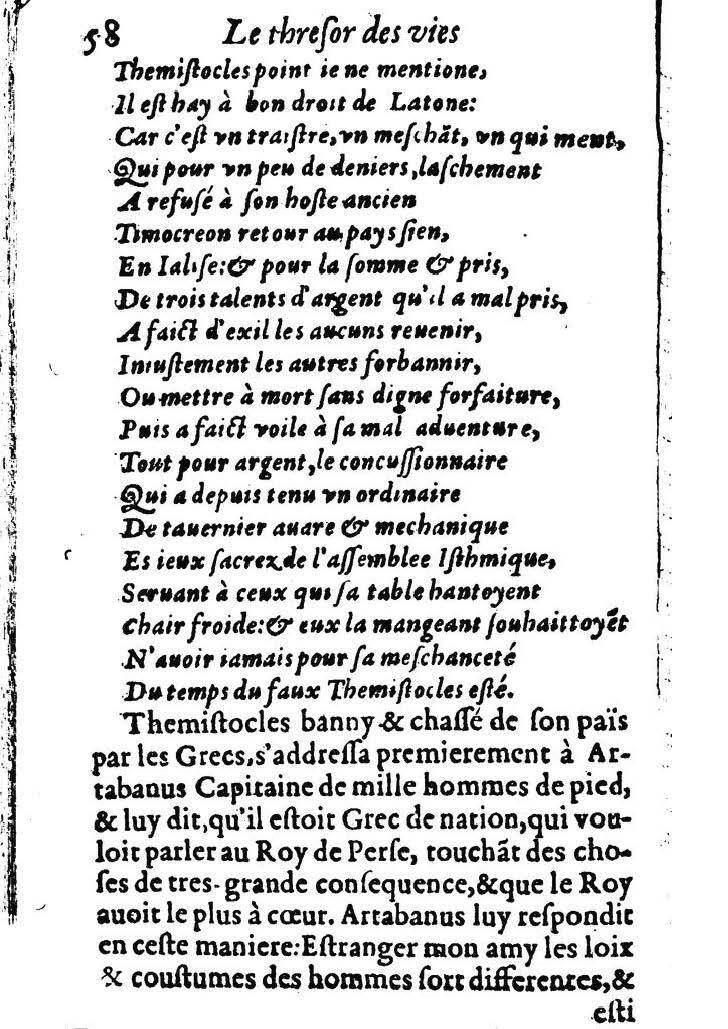 58 Le threſor des vies
Themiſtocles point ie ne mentione,
Il eſt hay à bon droit de Latone:
Car c'eſt vn traiſtre, vn meſchãt, vn qui ment,
Qui pour vn peu de deniers, laſchement
A refuſé à ſon hoſte ancien
Timocreon retour au pays ſien,
En Ialiſe: & pour la ſomme & pris,
De trois talents d'argent qu'il a mal pris,
A faict d'exil les aucuns reuenir,
Iniuſtement les autres forbannir,
Ou mettre à mort ſans digne forfaiture,
Puis a faict voile à ſa mal aduenture,
Tout pour argent, le concuſſionnaire
Qui a depuis tenu vn ordinaire
De tauernier auare & mechanique
Es ieux ſacrez de l'aſſemblee Iſthmique,
Seruant à ceux qui ſa table hantoyent
Chair froide: & eux la mangeant ſouhaittoyẽt
N'auoir iamais pour ſa meſchanceté
Du temps du faux Themiſtocles eſté.
Themiſtocles banny & chaſſé de ſon païs
par les Grecs, s'addreſſa premierement à Ar-
tabanus Capitaine de mille hommes de pied,
& luy dit, qu'il eſtoit Grec de nation, qui vou-
loit parler au Roy de Perſe, touchãt des cho-
ſes de tres-grande conſequence, & que le Roy
auoit le plus à cœur. Artabanus luy reſpondit
en ceſte maniere: Eſtranger mon amy les loix
& couſtumes des hommes ſort differentes, &
eſti